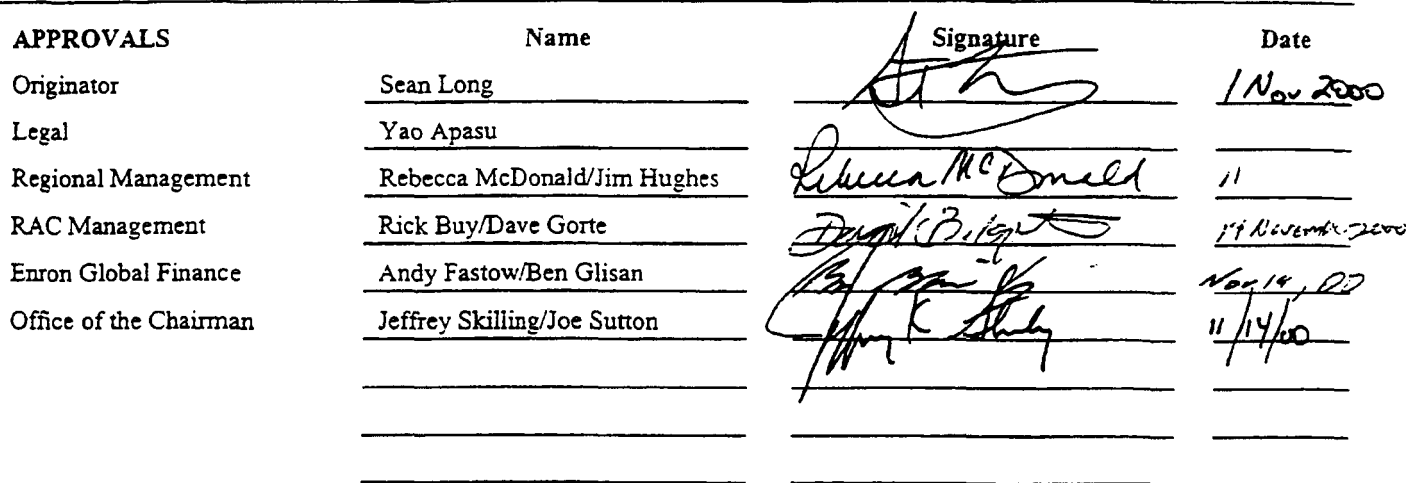 APPROVALS Name Signature Date
Originator Sean Long 1 Nov 2000
Legal Yao Apasu
Regional Management Rebecca McDonald/Jim Hughes Rebecca McDonald "
RAC Management Rick Buy/Dave Gorte 14 November 2000
Enron Global Finance Andy Fastow/Ben Glisan Nov 14, 00
Office of the Chairman Jeffrey Skilling/Joe Sutton 11/14/00